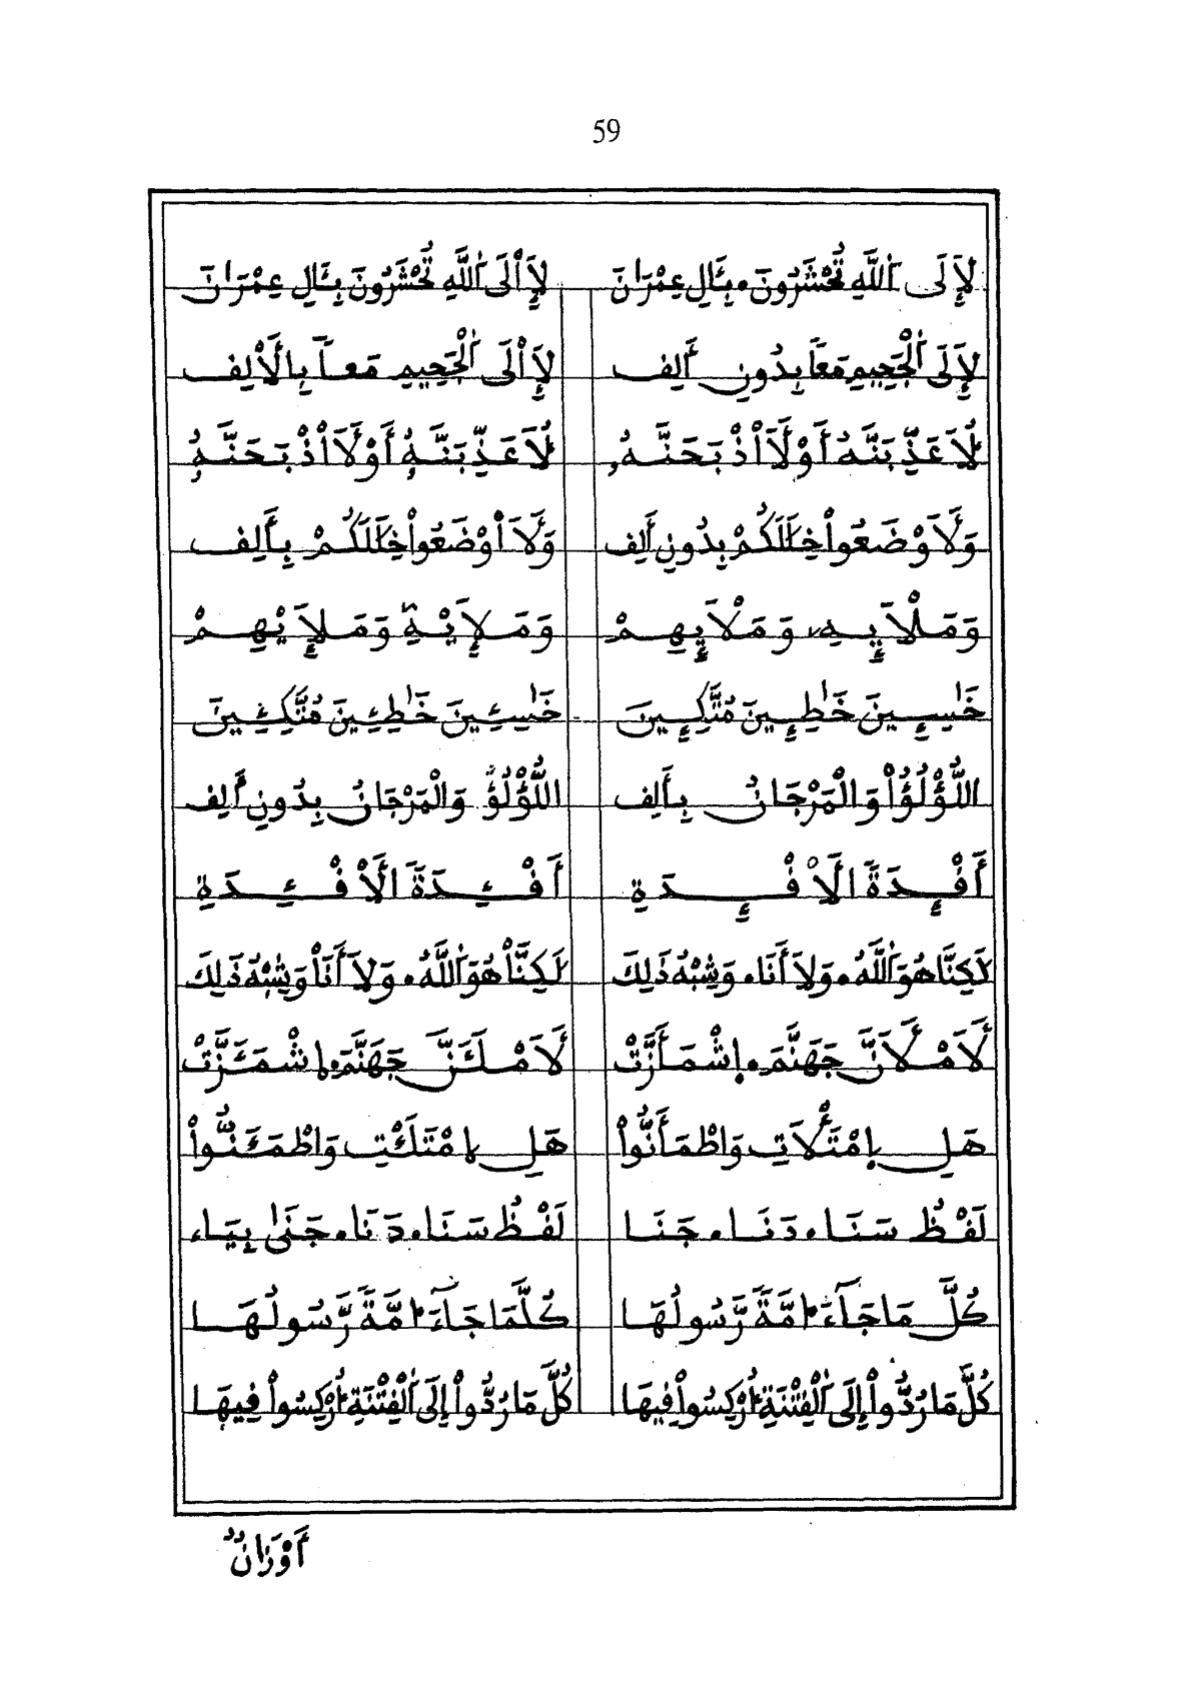 59
لَإِلَى اَللَّهِ تُحْشَرُونَ • بِـَٔالِ عِمْرَانَ لَإِاْلَى اَللَّهِ تُحْشَرُونَ بِـَٔالِ عِمْرَانَ
لَإِلَى اَلْجَحِيمِ مَعاً بِدُونِ أَلِف لَإِاْلَى اَلْجَحِيمِ مَعاً بِالْأَلِف
لَأُعَذِّبَنَّهُ أَوْ لَأَاْذْبَحَنَّهُ لَأُعَذِّبَنَّهُ أَوْ لَأَاْذْبَحَنَّهُ
وَلَأَوْضَعُواْ خِلَلَكُمْ بِدُونِ أَلِف وَلَأَاْوْضَعُواْ خِلَلَكُمْ بِأَلِف
وَمَلَإِيْهِ، وَمَلَإِيْهِمْ وَمَلَإِيْهِ وَمَلَإِيْهِمْ
خَٰسِـِٕينَ خَٰطِـِٕينَ مُتَّكِـِٕينَ خَٰسِئِينَ خَٰطِئِينَ مُتَّكِئِينَ
اللُّؤْلُؤُاْ وَالْمَرْجَانُ بِأَلِف اللُّؤْلُؤُ وَالْمَرْجَانُ بِدُونِ أَلِف
أَفْـِٕدَةً الَأفْـِٕدَةِ أَفْئِدَةً الَأفْئِدَةِ
لَكِنَّا هُوَ اَللَّهُ • وَلَا أَنَا • وَشِبْهُ ذَلِكَ لَكِنَّاْ هُوَ اَللَّهُ • وَلَا أَنَاْ وَشِبْهُ ذَلِكَ
لَأَمْلَأَنَّ جَهَنَّمَ • اِشْمَأَزَّتْ لَأَمْلَـَٔنَّ جَهَنَّمَ • اِشْمَـَٔزَّتْ
هَلِ اِمْتَلَأْتِ وَاطْمَأَنُّواْ هَلِ اِمْتَلَـْٔتِ وَاطْمَـَٔنُّواْ
لَفْظُ سَنَا • دَنَا • جَنَا لَفْظُ سَنَا • دَنَا • جَنَىٰ بِيَاء
كُلَّ مَا جَآءَ اُمَّةً رَّسُولُهَا كُلَّمَا جَآءَ اُمَّةً رَّسُولُهَا
كُلَّ مَا رُدُّواْ إِلَى اَلْفِتْنَةِ اُرْكِسُواْ فِيهَا كُلَّ مَا رُدُّواْ إِلَى اَلْفِتْنَةِ اُرْكِسُواْ فِيهَا
أَوْزَانٌ